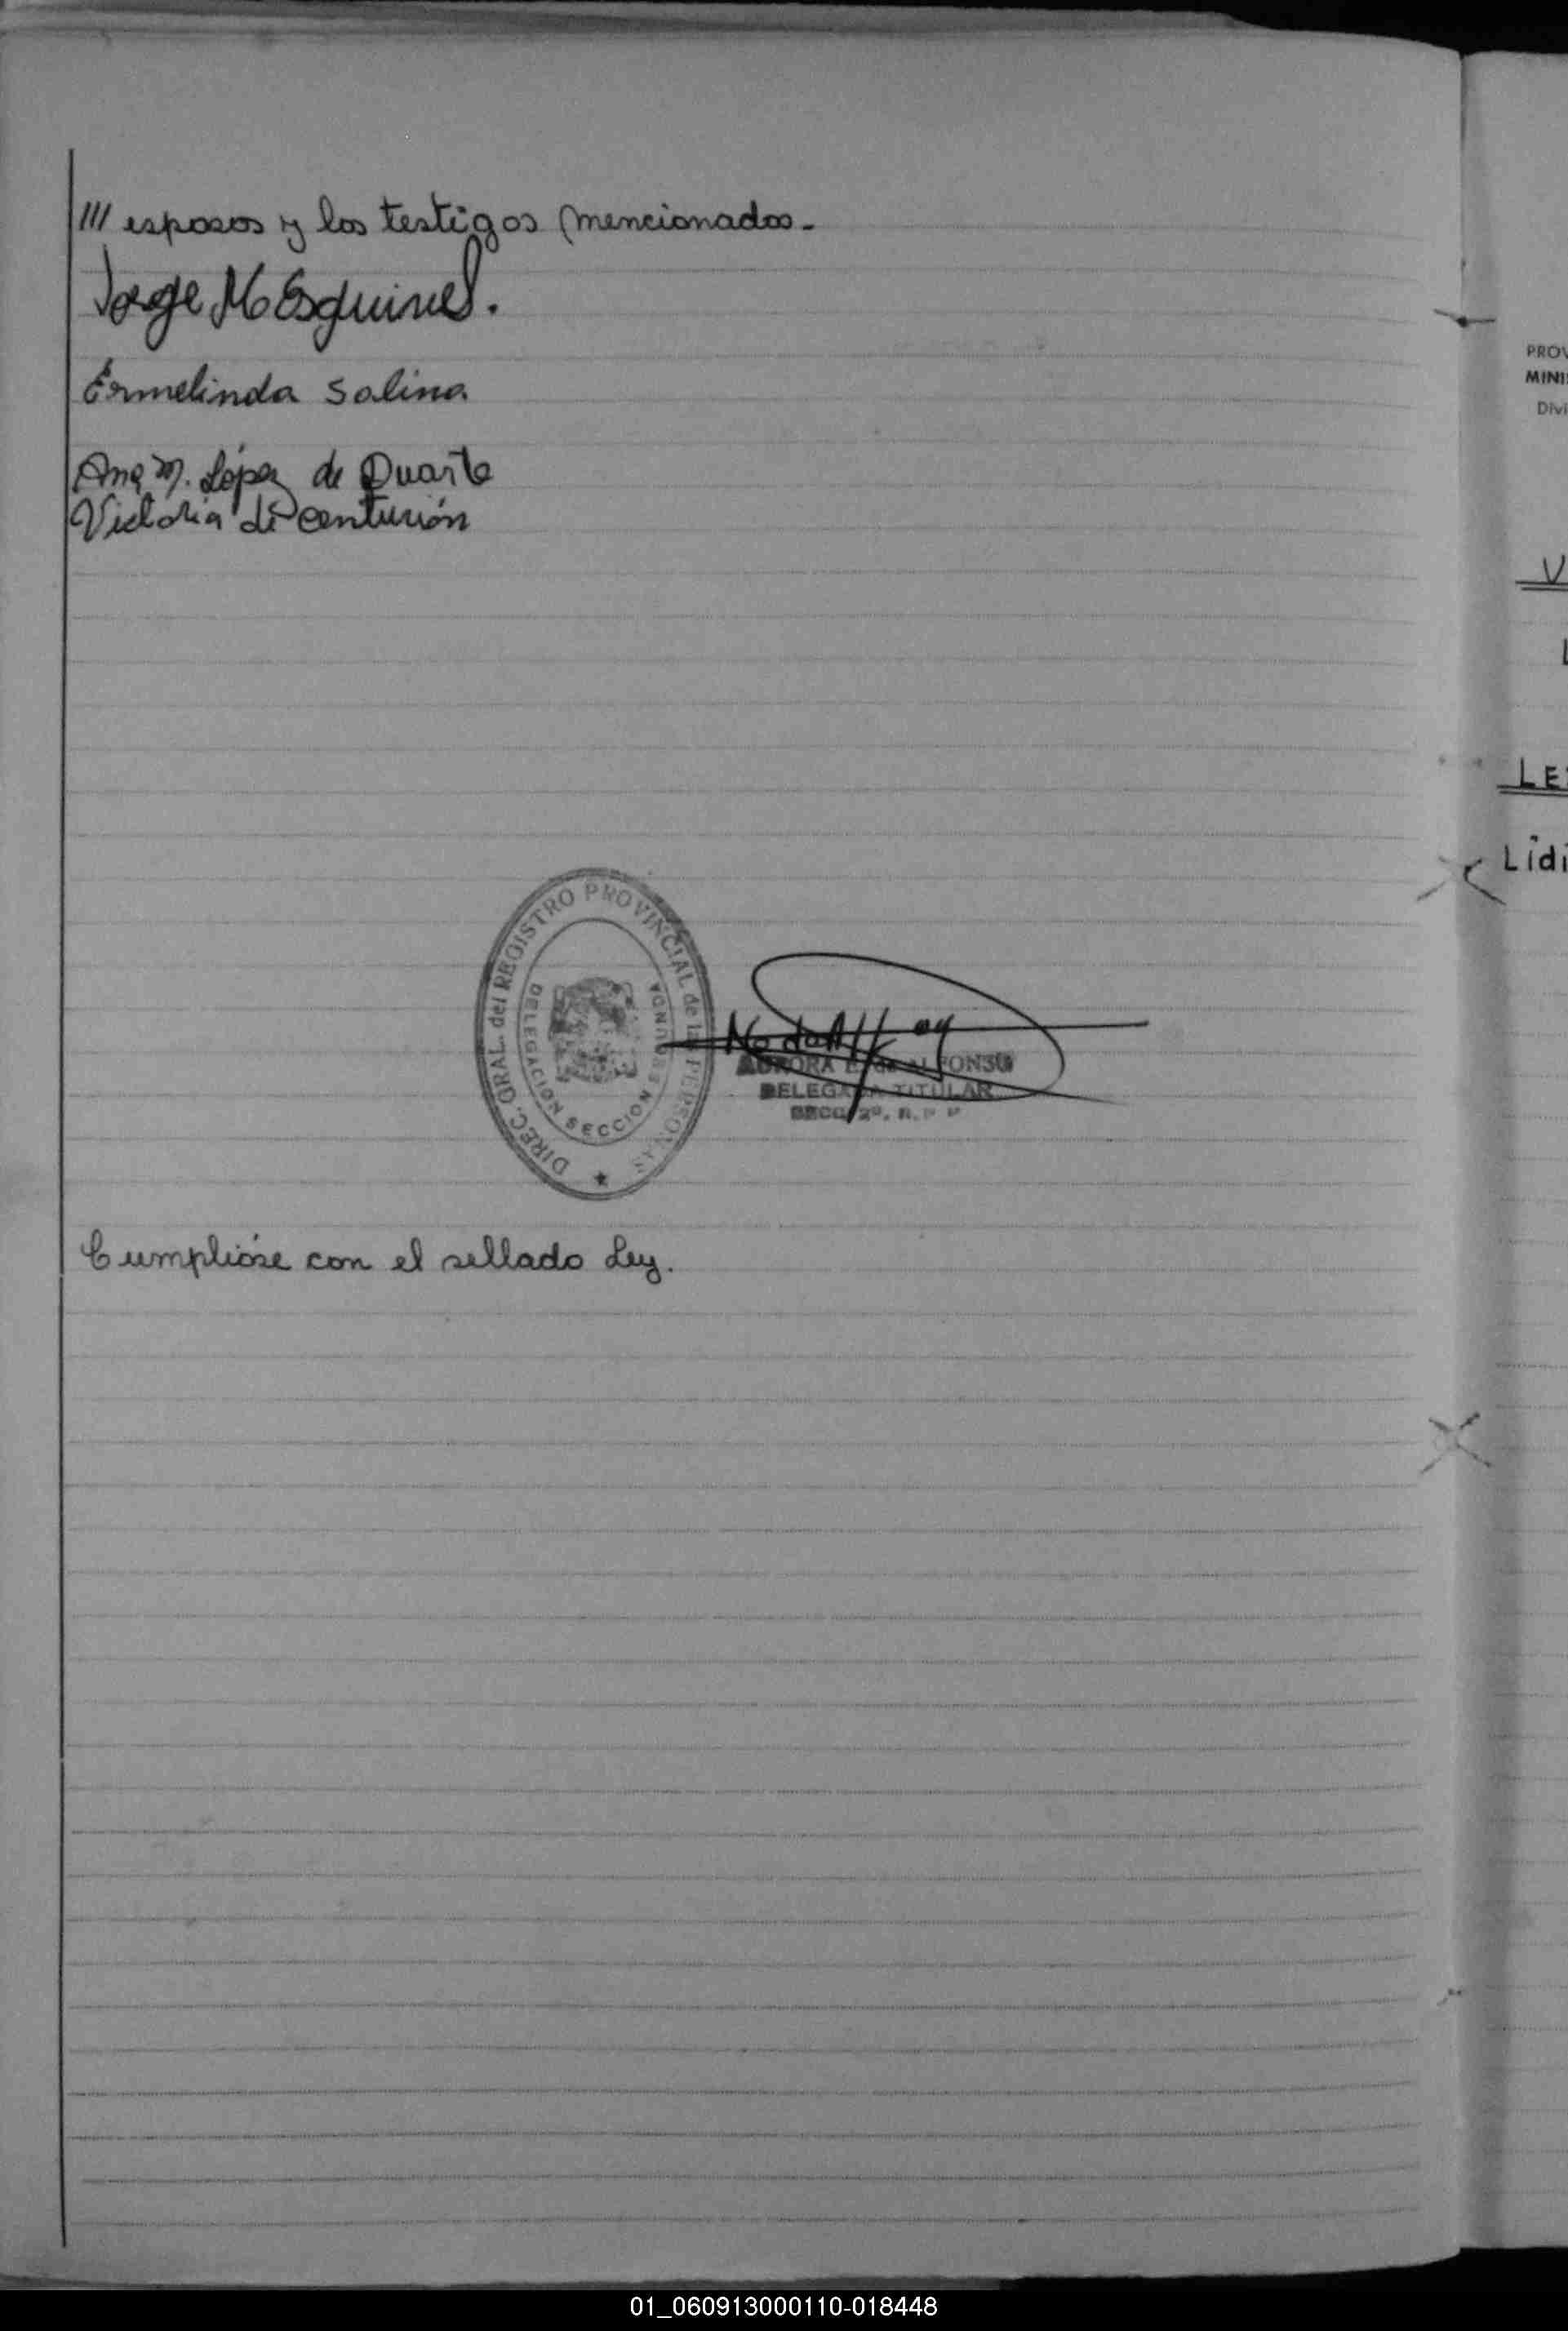 /// esposos y los testigos mencionados-
Jorge M Esquivel.
Ermelinda Salina
Ana M. López de Duarte
Victoria de Centurión
DIREC. GRAL. del REGISTRO PROVINCIAL de las PERSONAS
DELEGACION SECCION SEGUNDA
AURORA E. de ALFONSO
DELEGADA TITULAR
SECC. 2º. R. P. P.
Cumplióse con el sellado Ley.
PROV
MINI
Divi
V
L
LE
Lidi
01_060913000110-018448